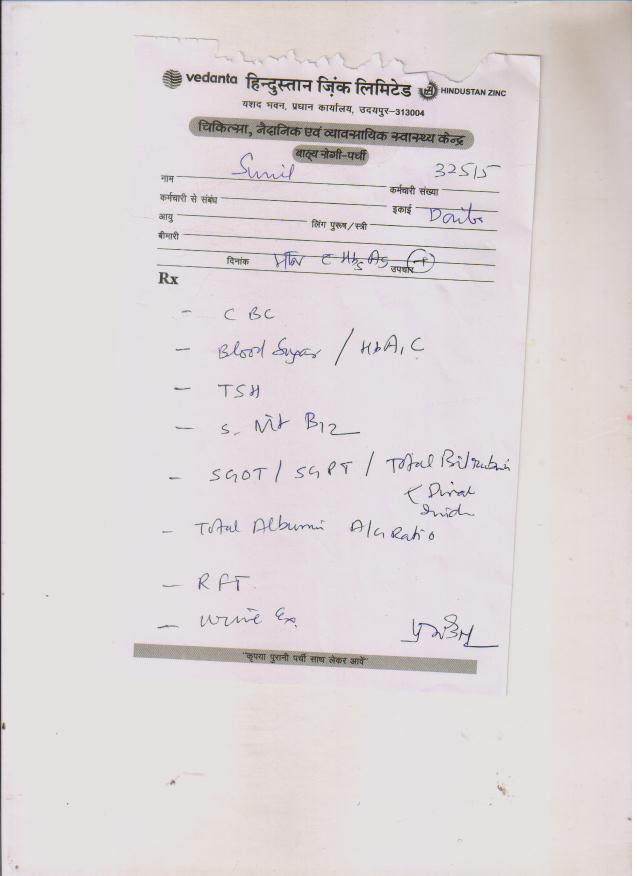 vedanta हिन्दुस्तान ज़िंक लिमिटेड HINDUSTAN ZINC
यशद भवन, प्रधान कार्यालय, उदयपुर-313004
चिकित्सा, नैदानिक एवं व्यावसायिक स्वास्थ्य केन्द्र
बाह्य रोगी-पर्ची
नाम Sunil कर्मचारी संख्या 32515
कर्मचारी से संबंध इकाई
आयु लिंग पुरूष/स्त्री
बीमारी
दिनांक उपचार
Rx
- CBC
- Blood Sugar / HbA1C
- TSH
- S. Vit B12
- SGOT / SGPT / Total Bilirubin
- Total Albumin A/G Ratio
- RFT
- Urine Ex.
"कृपया पुरानी पर्ची साथ लेकर आवें"